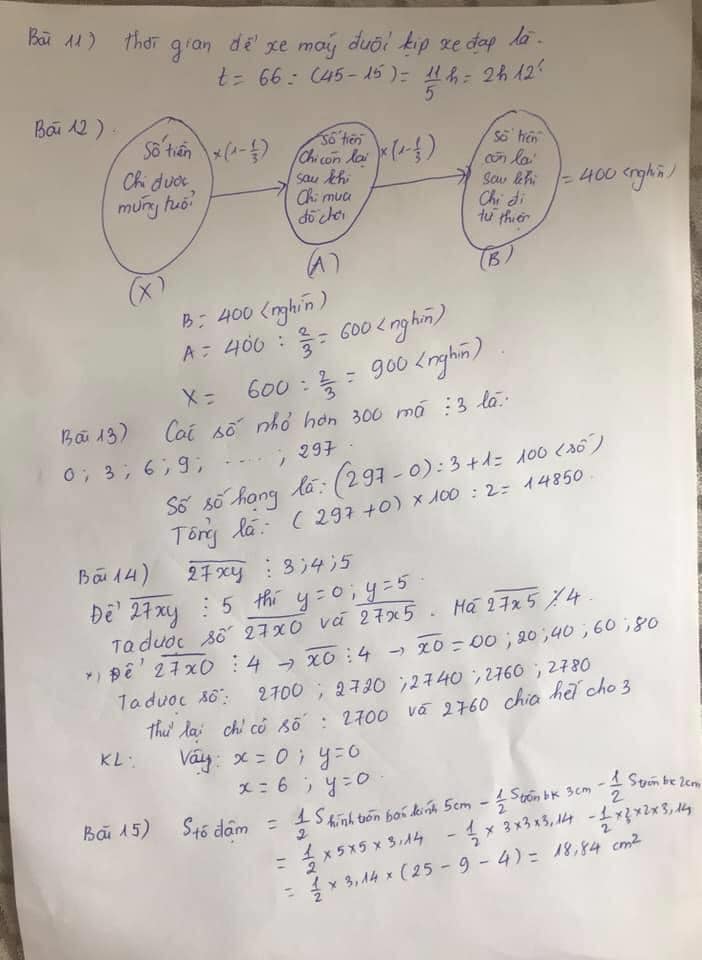 Bài 11) Thời gian để xe máy đuổi kịp xe đạp là.
t = 66 : (45 - 15) = 11/5 h = 2h 12'
Bài 12).
Số tiền Chi được mừng tuổi
(X)
×(1-1/3)
Số tiền Chi còn lại sau khi Chi mua đồ chơi
(A)
×(1-1/3)
Số tiền còn lại sau khi Chi đi từ thiện
(B)
= 400 <nghìn)
B = 400 <nghìn)
A = 400 : 2/3 = 600 <nghìn)
X = 600 : 2/3 = 900 <nghìn).
Bài 13) Các số nhỏ hơn 300 mà ⋮3 là:
0 ; 3 ; 6 ; 9 ; ..... ; 297.
Số số hạng là: (297 - 0) : 3 + 1 = 100 <số)
Tổng là: (297 + 0) × 100 : 2 = 14850.
Bài 14) 27xy ⋮ 3 ; 4 ; 5
Để 27xy ⋮ 5 thì y = 0 ; y = 5.
Ta được số 27x0 và 27x5. Mà 27x5 ⋮̸ 4.
*, Để 27x0 ⋮ 4 → x0 ⋮ 4 → x0 = 00 ; 20 ; 40 ; 60 ; 80
Ta được số: 2700 ; 2720 ; 2740 ; 2760 ; 2780
thử lại chỉ có số : 2700 và 2760 chia hết cho 3
KL: Vậy: x = 0 ; y = 0
x = 6 ; y = 0.
Bài 15) S tô đậm = 1/2 S hình tròn bán kính 5cm - 1/2 S tròn bk 3cm - 1/2 S tròn bk 2cm
= 1/2 × 5 × 5 × 3,14 - 1/2 × 3 × 3 × 3,14 - 1/2 × 2 × 2 × 3,14
= 1/2 × 3,14 × (25 - 9 - 4) = 18,84 cm²